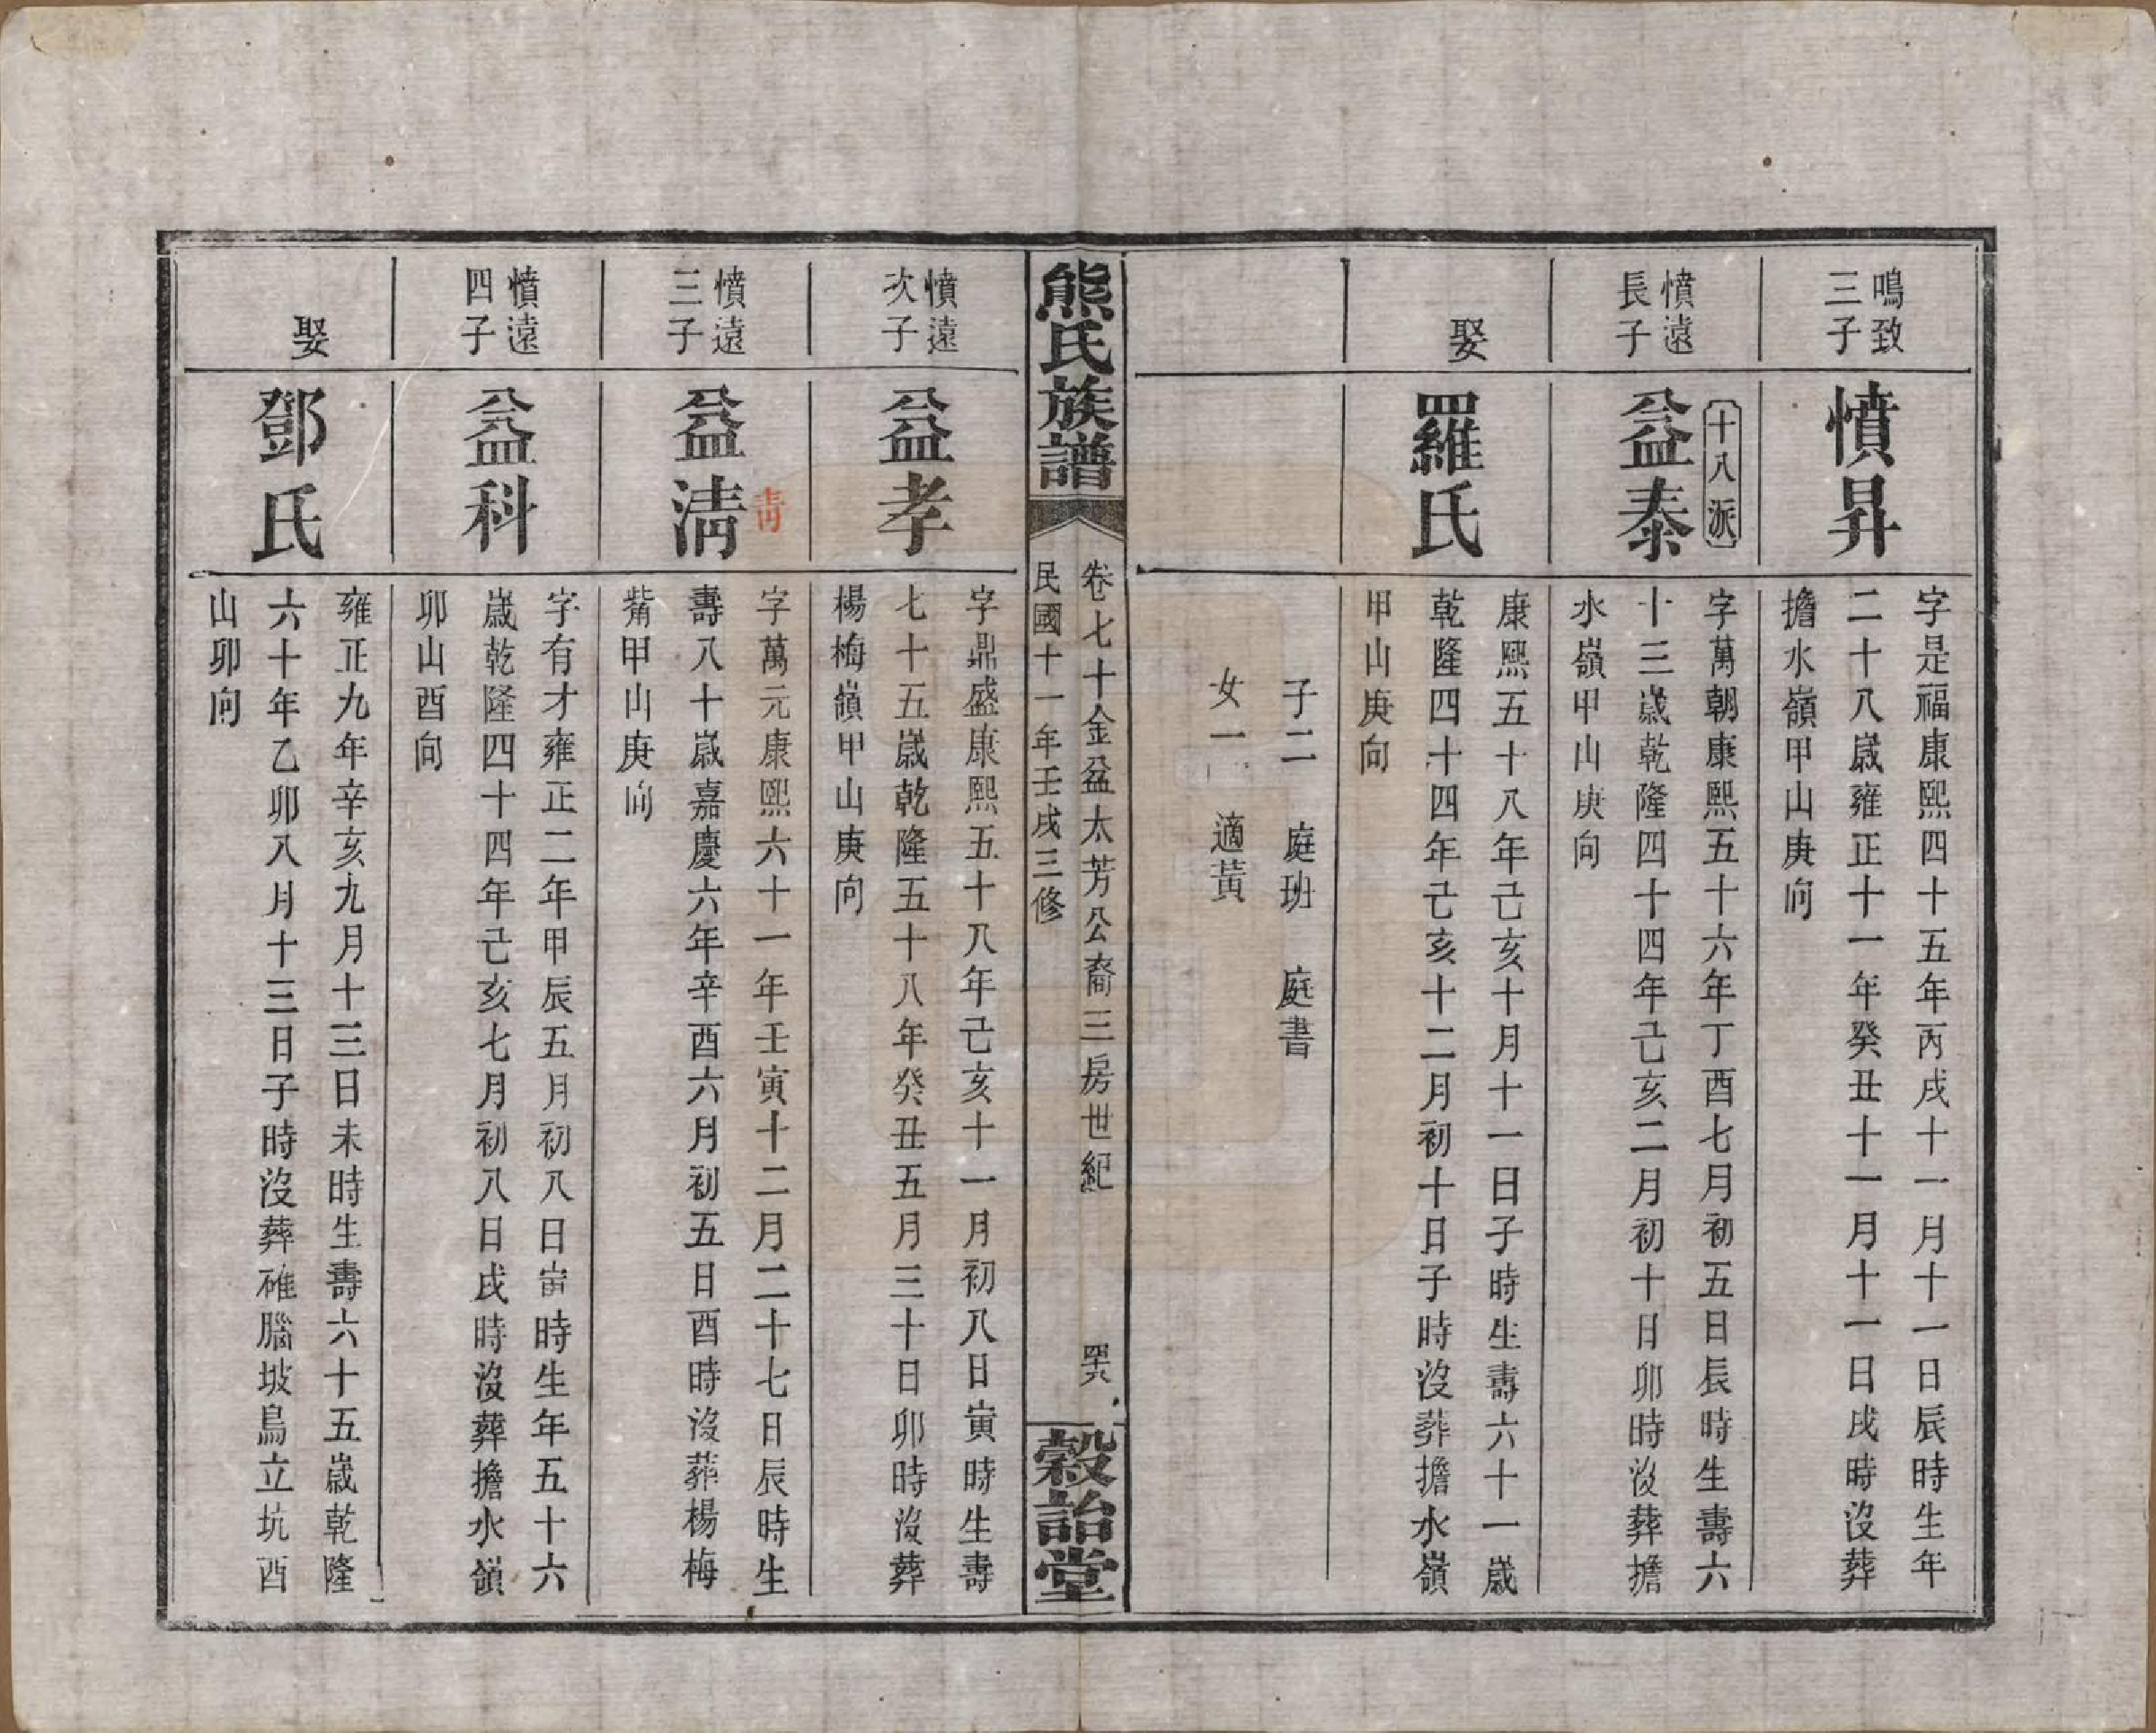 鳴致
三子
憤昇
字是福康熙四十五年丙戌十一月十一日辰時生年
二十八歲雍正十一年癸丑十一月十一日戌時沒葬
擔水嶺甲山庚向
憤遠
長子
十八派
益泰
字萬朝康熙五十六年丁酉七月初五日辰時生壽六
十三歲乾隆四十四年己亥二月初十日卯時沒葬擔
水嶺甲山庚向
娶
羅氏
康熙五十八年己亥十月十一日子時生壽六十一歲
乾隆四十四年己亥十二月初十日子時沒葬擔水嶺
甲山庚向
子二　庭班　庭書
女一　適黃
熊氏族譜
卷七十金盆太芳公裔三房世紀
民國十一年壬戌三修
穀詒堂
憤遠
次子
益孝
字鼎盛康熙五十八年己亥十一月初八日寅時生壽
七十五歲乾隆五十八年癸丑五月三十日卯時沒葬
楊梅嶺甲山庚向
憤遠
三子
益清
青
字萬元康熙六十一年壬寅十二月二十七日辰時生
壽八十歲嘉慶六年辛酉六月初五日酉時沒葬楊梅
觜甲山庚向
憤遠
四子
益科
字有才雍正二年甲辰五月初八日寅時生年五十六
歲乾隆四十四年己亥七月初八日戌時沒葬擔水嶺
卯山酉向
娶
鄧氏
雍正九年辛亥九月十三日未時生壽六十五歲乾隆
六十年乙卯八月十三日子時沒葬碓腦坡鳥立坑酉
山卯向